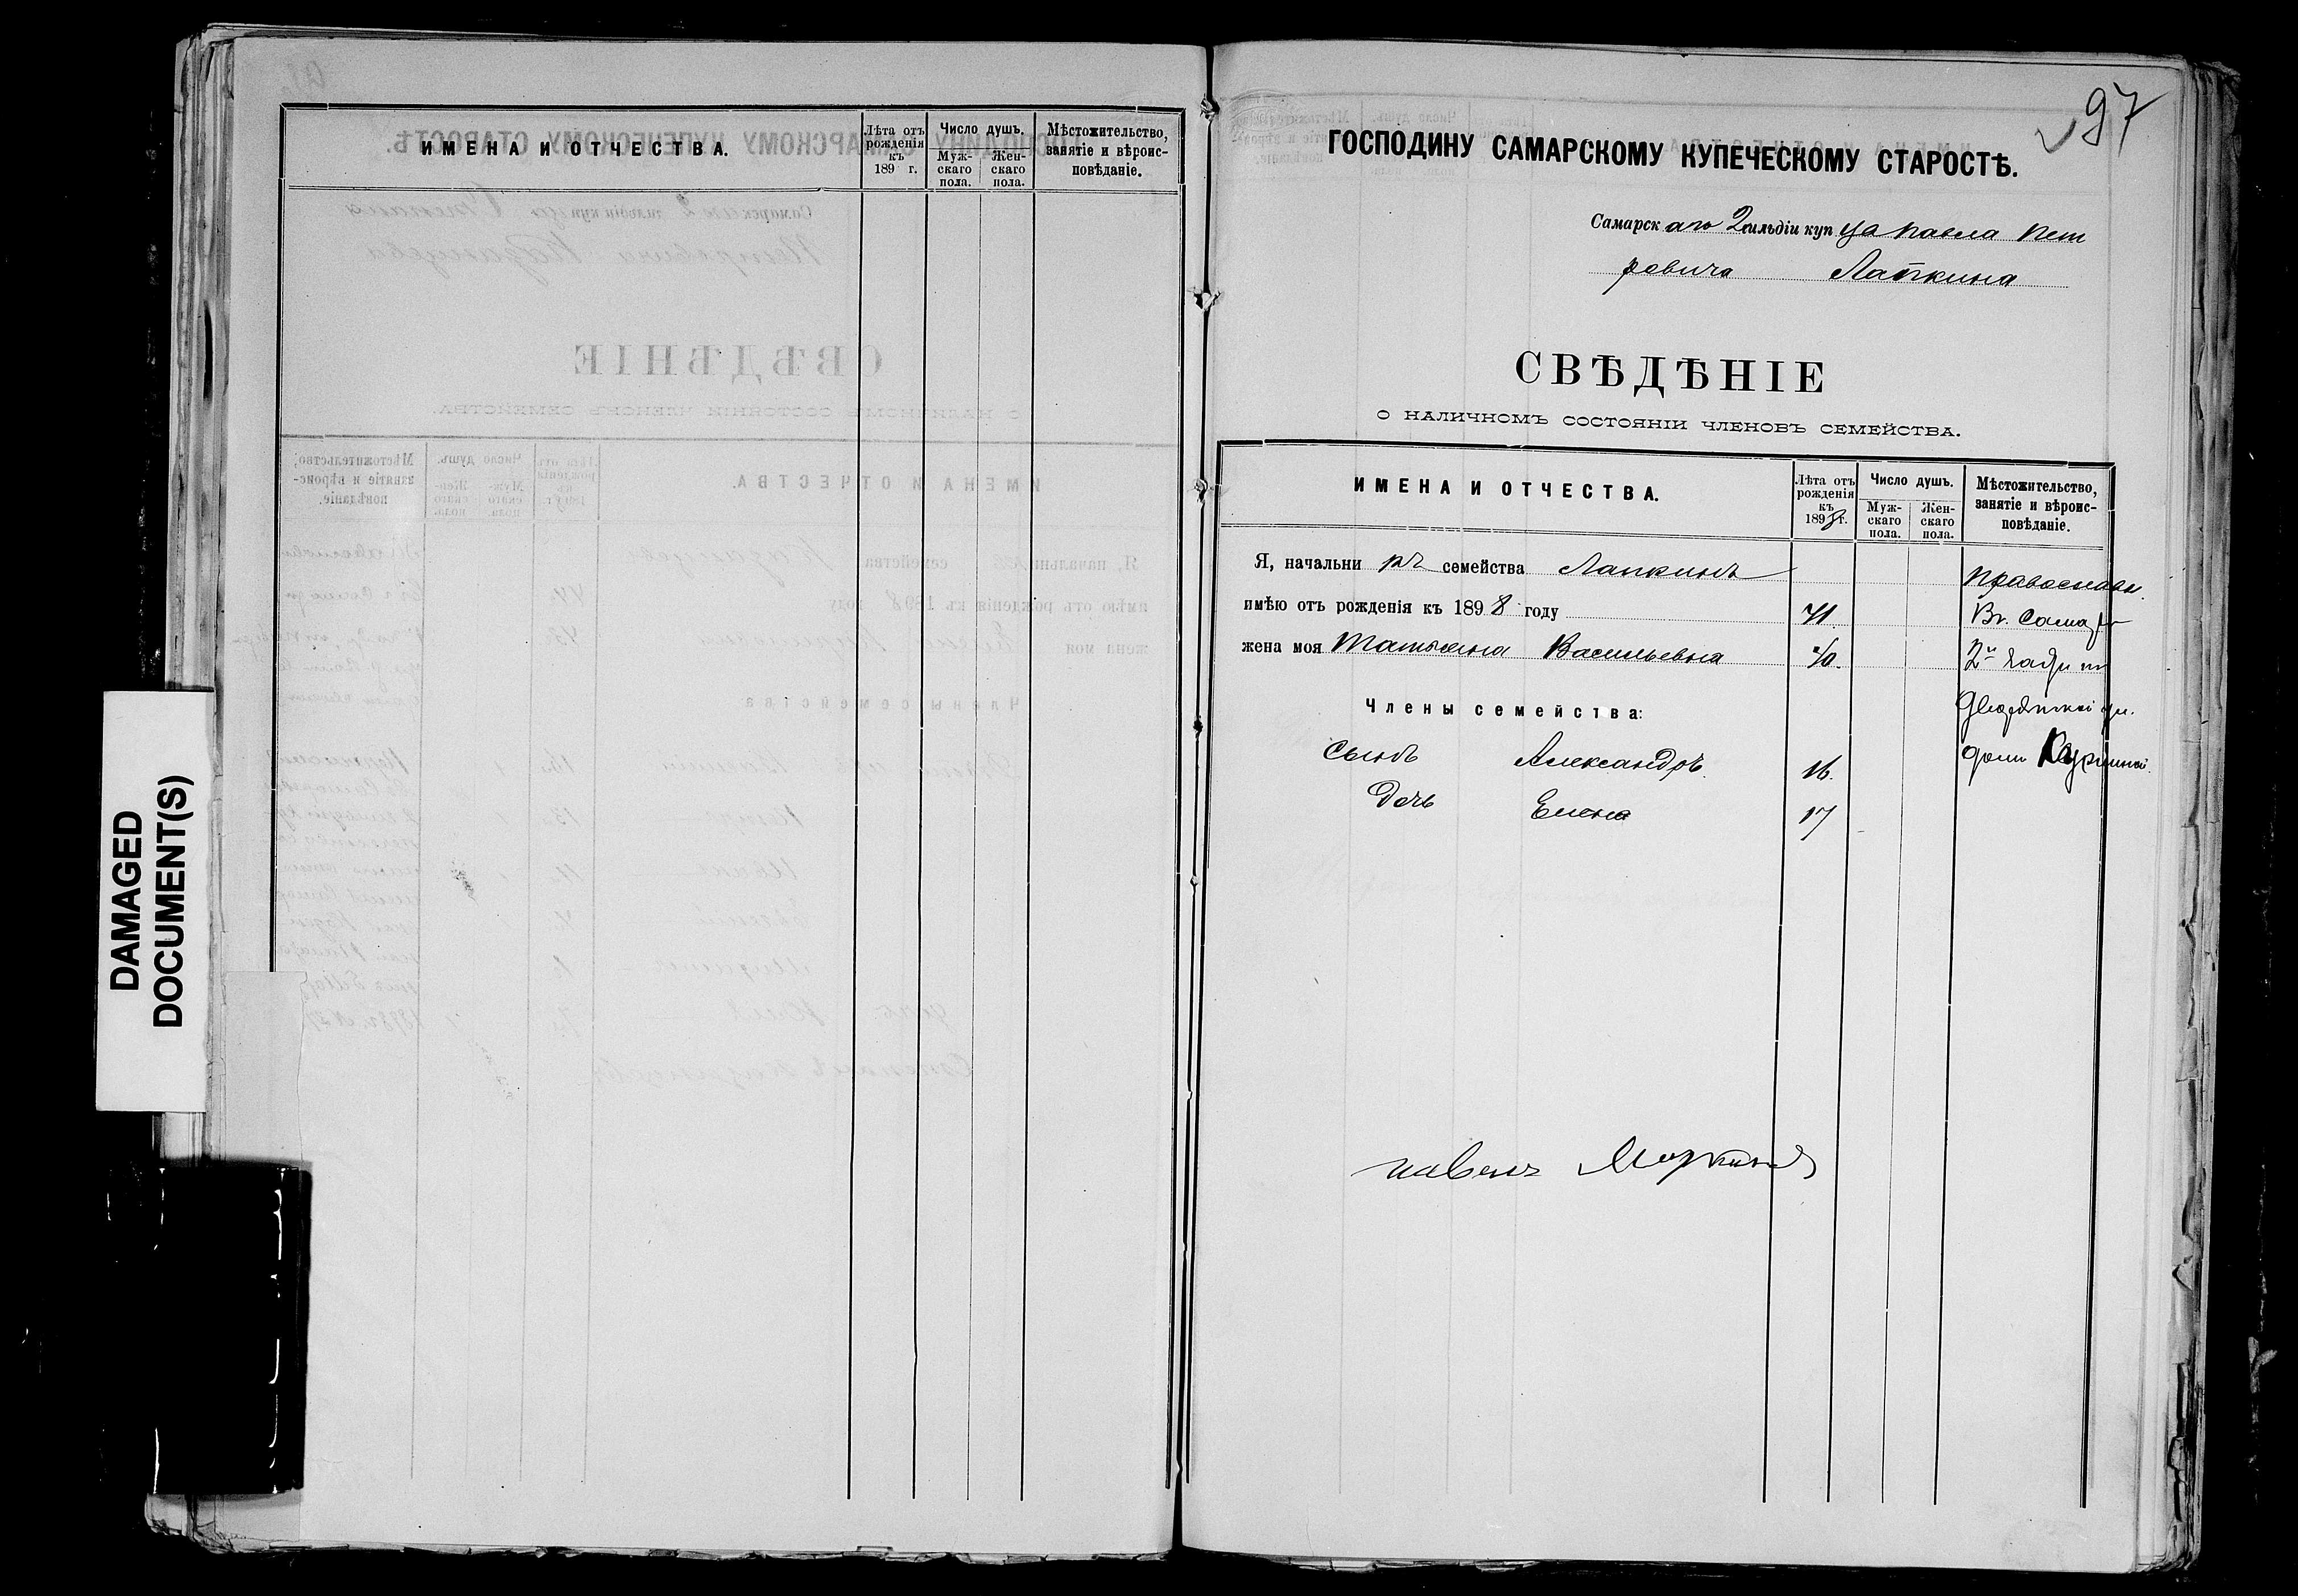 ИМЕНА И ОТЧЕСТВА.
Лѣта отъ рожденія къ 189 г.
Число душъ.
Муж-
скаго
пола.
Жен-
скаго
пола.
Мѣстожительство,
занятіе и вѣроис-
повѣданіе.
DAMAGED
DOCUMENT(S)
97
ГОСПОДИНУ САМАРСКОМУ КУПЕЧЕСКОМУ СТАРОСТѢ.
Самарскаго 2 гильдіи купца Павла Пет
ровича Лапкина
СВѢДѢНІЕ
О НАЛИЧНОМЪ СОСТОЯНІИ ЧЛЕНОВЪ СЕМЕЙСТВА.
ИМЕНА И ОТЧЕСТВА.
Лѣта отъ
рожденія
къ
1898 г.
Число душъ.
Муж-
скаго
пола.
Жен-
скаго
пола.
Мѣстожительство,
занятіе и вѣроис-
повѣданіе.
Я, начальникъ семейства Лапкинъ православн.
имѣю отъ рожденія къ 1898 году 41. Въ Самар
жена моя Татьяна Васильевна 40. 2й части
Члены семейства: Дворянской ул.
Сынъ Александръ. 16. домъ
Дочь Елена 17
Павелъ